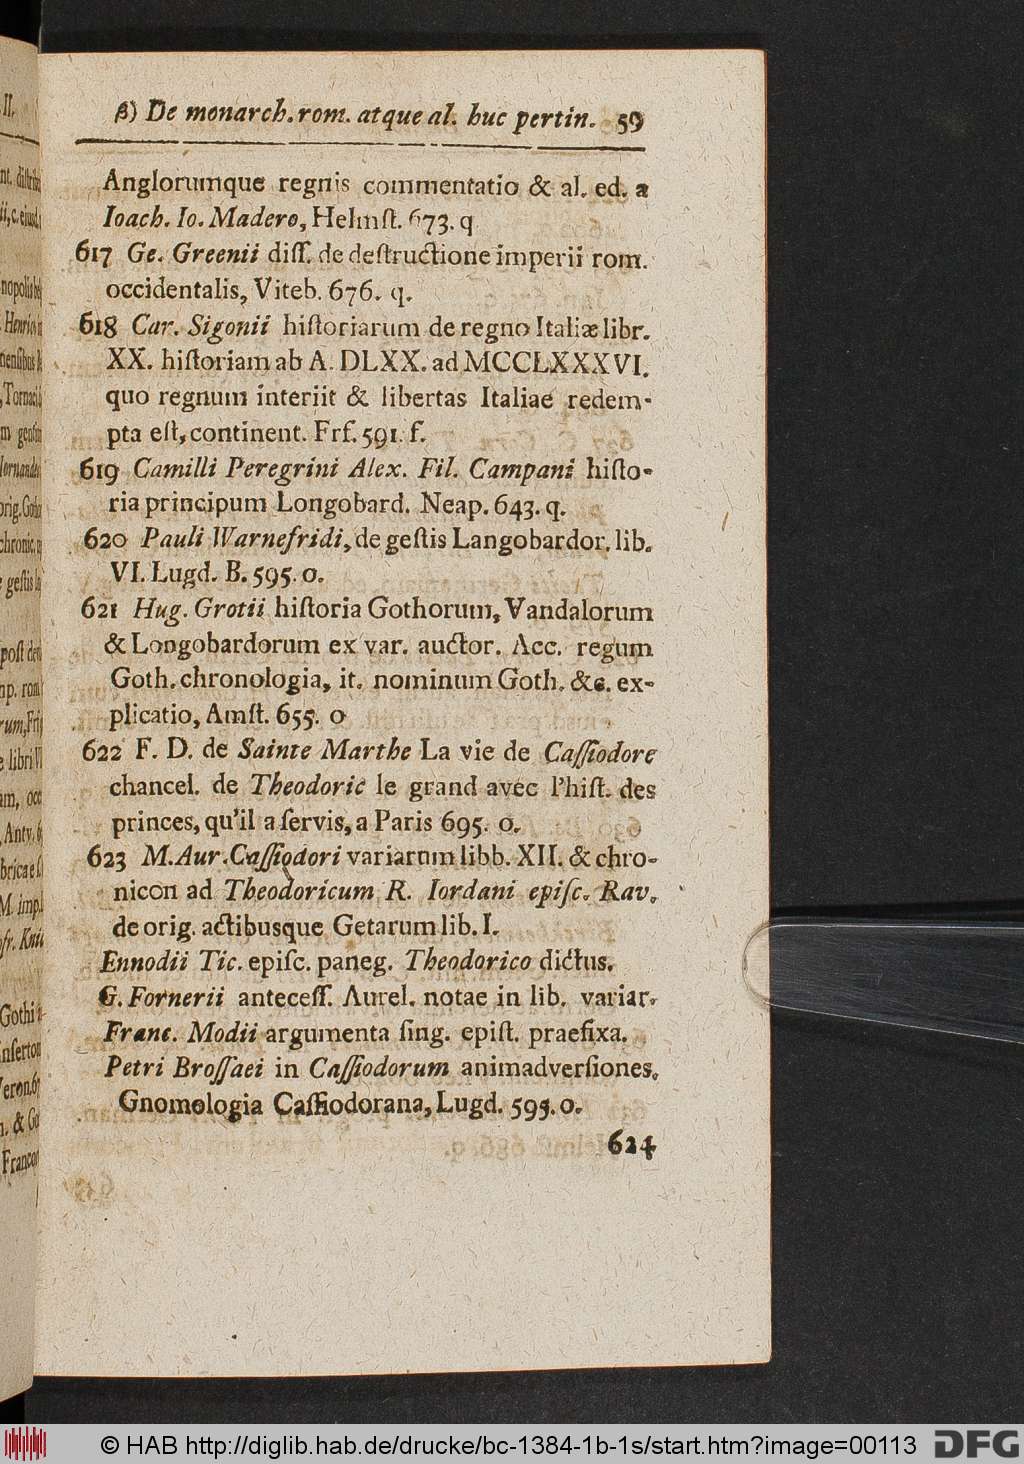 β) De monarch. rom. atque al. huc pertin. 59
Anglorumque regnis commentatio & al. ed. a
Ioach. Io. Madero, Helmſt. 673. q
617 Ge. Greenii diſſ. de deſtructione imperii rom.
occidentalis, Viteb. 676. q.
618 Car. Sigonii hiſtoriarum de regno Italiæ libr.
XX. hiſtoriam ab A. DLXX. ad MCCLXXXVI.
quo regnum interiit & libertas Italiae redem-
pta eſt, continent. Frf. 591. f.
619 Camilli Peregrini Alex. Fil. Campani hiſto-
ria principum Longobard. Neap. 643. q.
620 Pauli Warnefridi, de geſtis Langobardor. lib.
VI. Lugd. B. 595. o.
621 Hug. Grotii hiſtoria Gothorum, Vandalorum
& Longobardorum ex var. auctor. Acc. regum
Goth. chronologia, it. nominum Goth. &c. ex-
plicatio, Amſt. 655. o
622 F. D. de Sainte Marthe La vie de Caſſiodore
chancel. de Theodoric le grand avec l'hiſt. des
princes, qu'il a ſervis, a Paris 695. o.
623 M. Aur. Caſſiodori variarum libb. XII. & chro-
nicon ad Theodoricum R. Iordani epiſc. Rav.
de orig. actibusque Getarum lib. I.
Ennodii Tic. epiſc. paneg. Theodorico dictus.
G. Fornerii anteceſſ. Aurel. notae in lib. variar.
Franc. Modii argumenta ſing. epiſt. praefixa.
Petri Broſſaei in Caſſiodorum animadverſiones.
Gnomologia Caſſiodorana, Lugd. 595. o.
624
© HAB http://diglib.hab.de/drucke/bc-1384-1b-1s/start.htm?image=00113
DFG